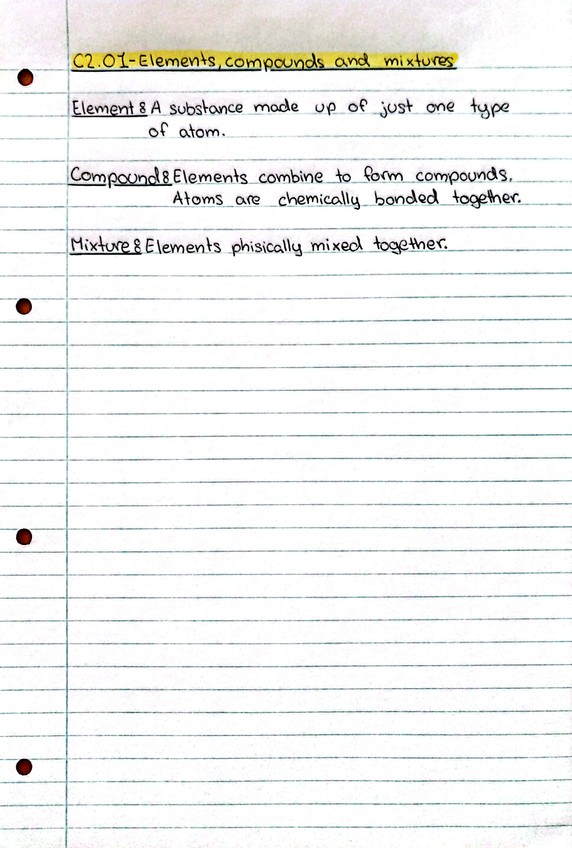 C2.01-Elements, compounds and mixtures
Element: A substance made up of just one type
of atom.
Compound: Elements combine to form compounds.
Atoms are chemically bonded together.
Mixture: Elements phisically mixed together.